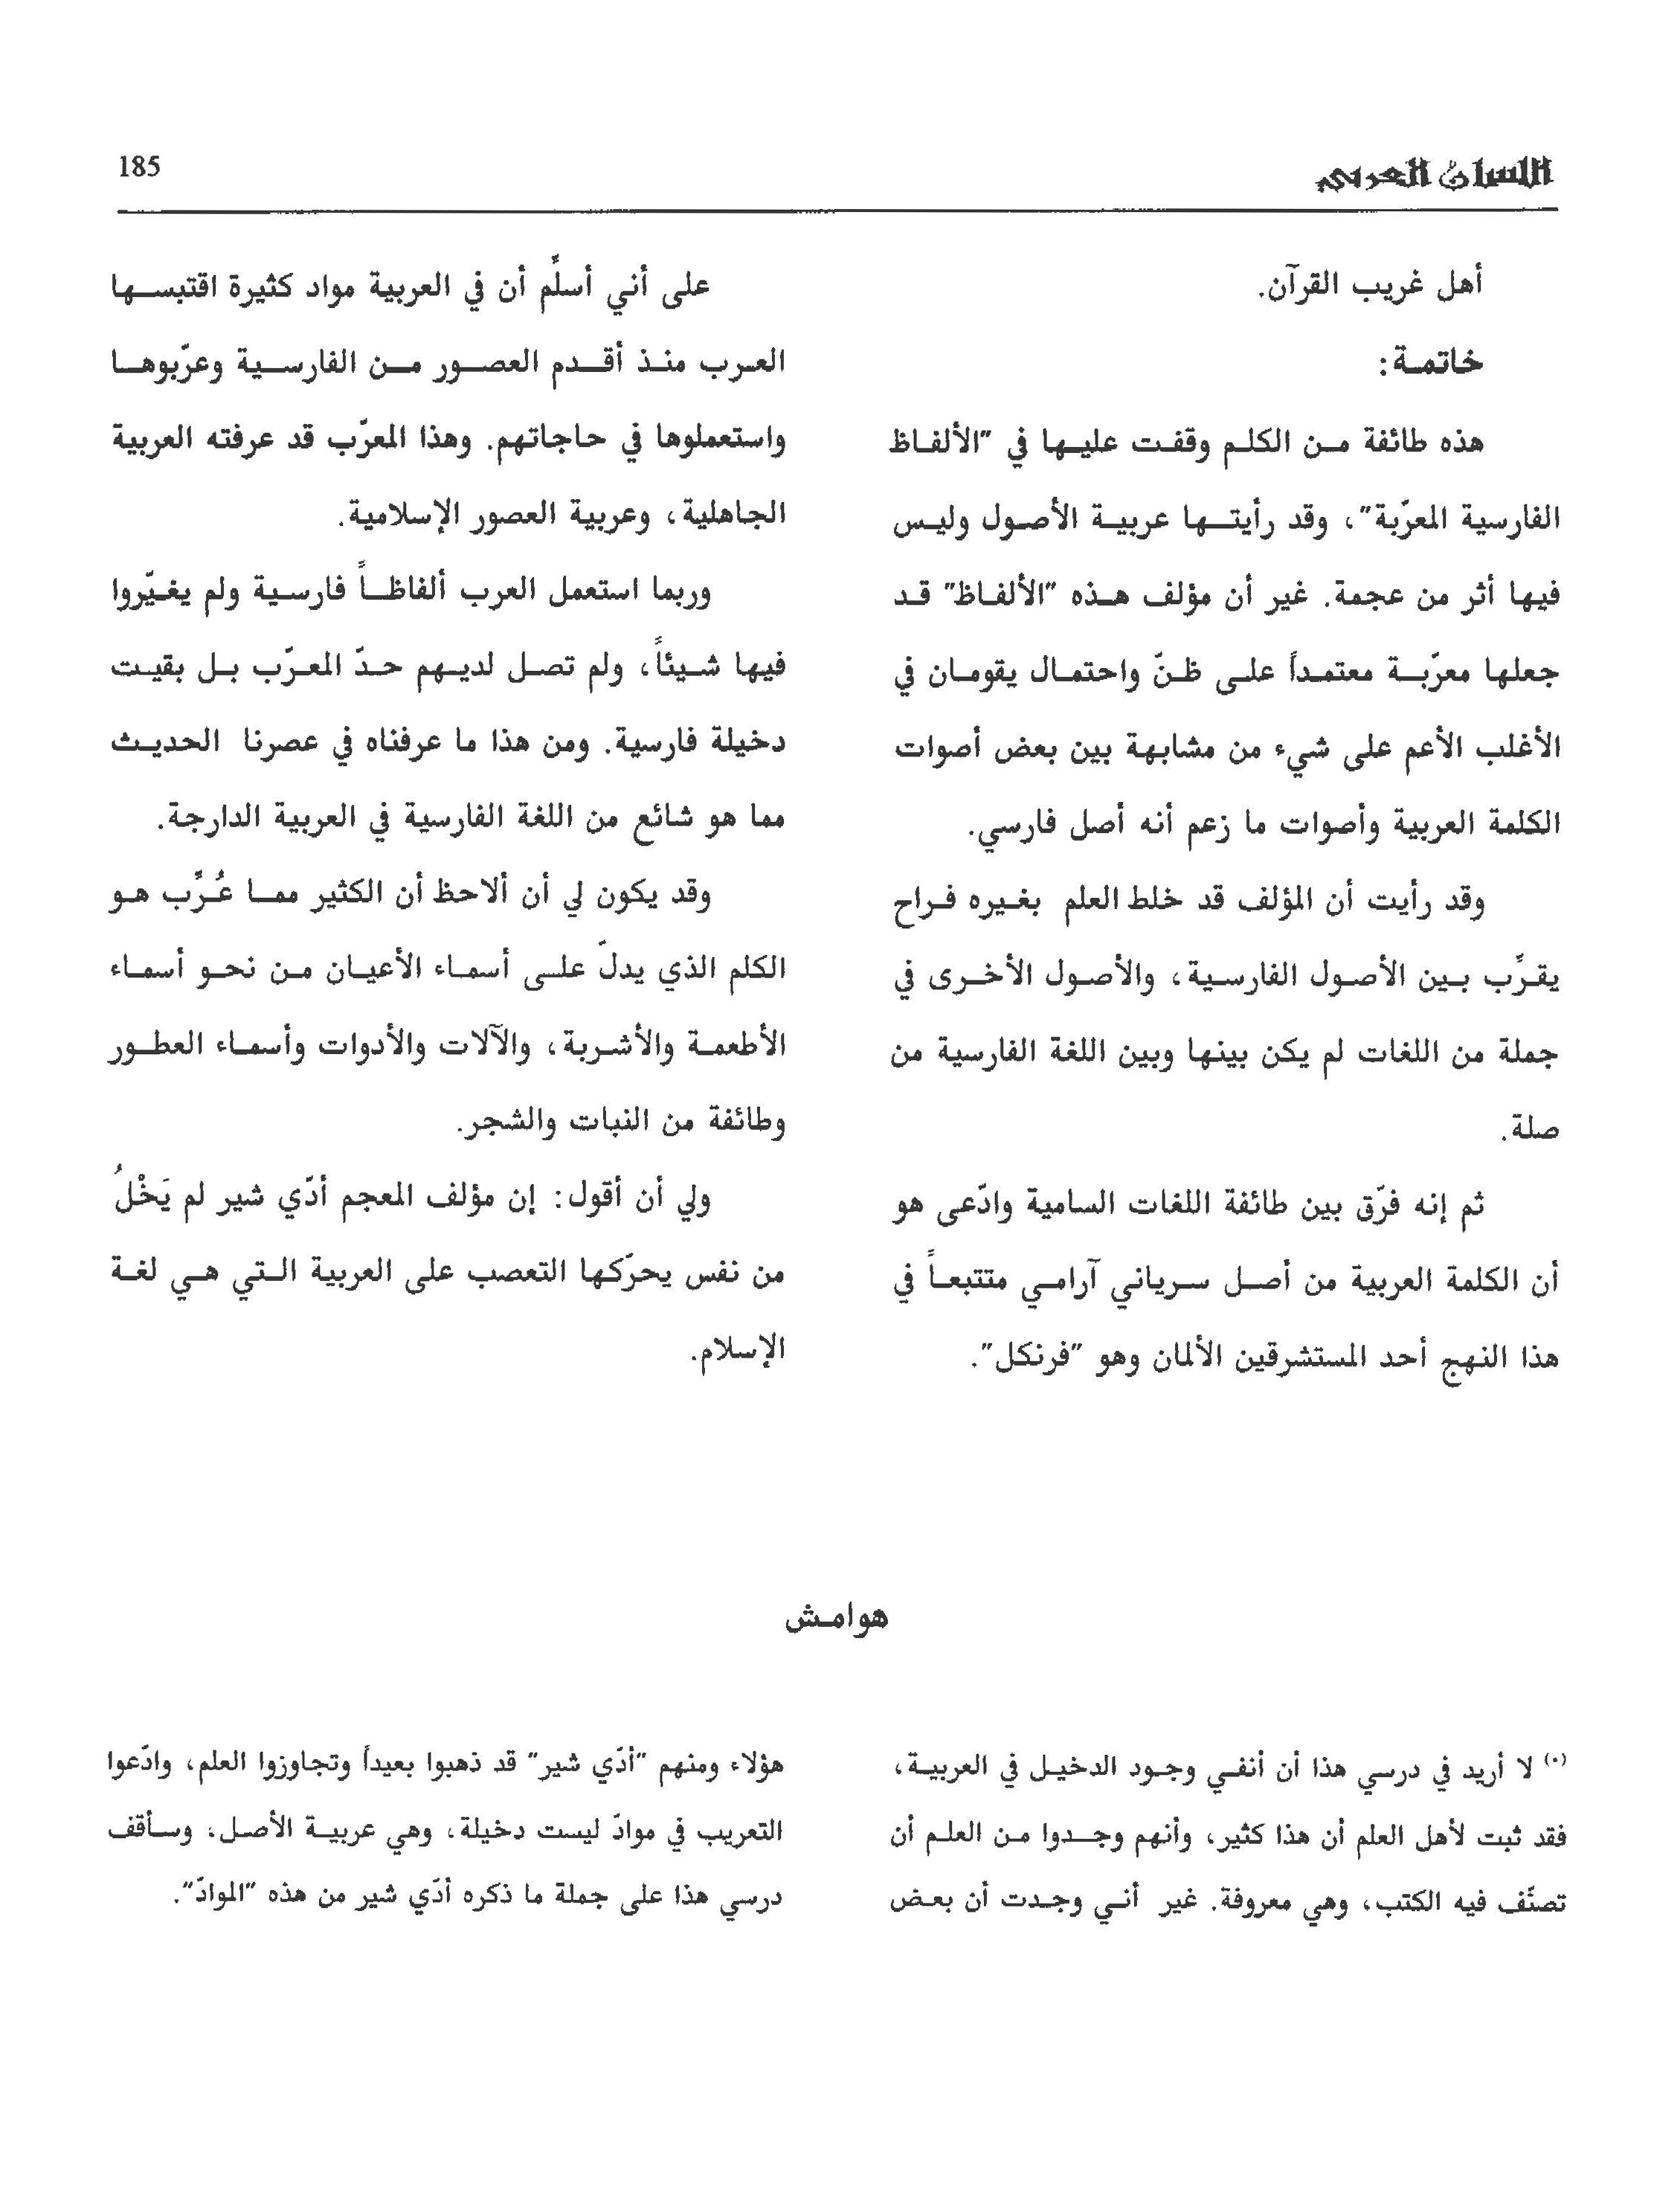 اللسان العربي
185
أهل غريب القرآن.
خاتمة:
هذه طائفة من الكلم وقفت عليها في "الألفاظ
الفارسية المعرّبة"، وقد رأيتها عربية الأصول وليس
فيها أثر من عجمة. غير أن مؤلف هذه "الألفاظ" قد
جعلها معرّبة معتمداً على ظنّ واحتمال يقومان في
الأغلب الأعم على شيء من مشابهة بين بعض أصوات
الكلمة العربية وأصوات ما زعم أنه أصل فارسي.
وقد رأيت أن المؤلف قد خلط العلم بغيره فراح
يقرِّب بين الأصول الفارسية، والأصول الأخرى في
جملة من اللغات لم يكن بينها وبين اللغة الفارسية من
صلة.
ثم إنه فرّق بين طائفة اللغات السامية وادّعى هو
أن الكلمة العربية من أصل سرياني آرامي متتبعاً في
هذا النهج أحد المستشرقين الألمان وهو "فرنكل".
على أني أسلِّم أن في العربية مواد كثيرة اقتبسها
العرب منذ أقدم العصور من الفارسية وعرّبوها
واستعملوها في حاجاتهم. وهذا المعرّب قد عرفته العربية
الجاهلية، وعربية العصور الإسلامية.
وربما استعمل العرب ألفاظاً فارسية ولم يغيّروا
فيها شيئاً، ولم تصل لديهم حدّ المعرّب بل بقيت
دخيلة فارسية. ومن هذا ما عرفناه في عصرنا الحديث
مما هو شائع من اللغة الفارسية في العربية الدارجة.
وقد يكون لي أن ألاحظ أن الكثير مما عُرِّب هو
الكلم الذي يدلّ على أسماء الأعيان من نحو أسماء
الأطعمة والأشربة، والآلات والأدوات وأسماء العطور
وطائفة من النبات والشجر.
ولي أن أقول: إن مؤلف المعجم أدّي شير لم يَخْلُ
من نفس يحرّكها التعصب على العربية التي هي لغة
الإسلام.
هوامش
(٠) لا أريد في درسي هذا أن أنفي وجود الدخيل في العربية،
فقد ثبت لأهل العلم أن هذا كثير، وأنهم وجدوا من العلم أن
تصنّف فيه الكتب، وهي معروفة. غير أني وجدت أن بعض
هؤلاء ومنهم "أدّي شير" قد ذهبوا بعيداً وتجاوزوا العلم، وادّعوا
التعريب في موادّ ليست دخيلة، وهي عربية الأصل، وسأقف
درسي هذا على جملة ما ذكره أدّي شير من هذه "الموادّ".